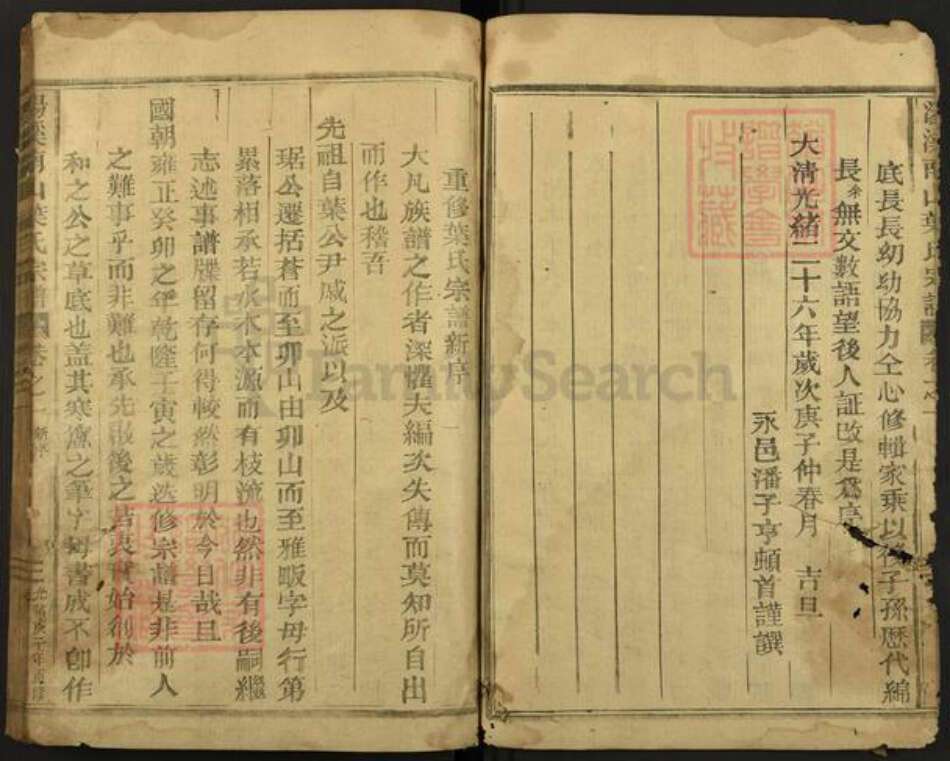 底長長幼幼協力仝心修輯家乘以後子孫歷代綿
長余無文數語望後人証改是爲序
大清光緒二十六年歲次庚子仲春月 吉旦
永邑潘子亨頓首謹譔
重修葉氏宗譜新序
大凡族譜之作者深懼夫編次失傳而莫知所自出
而作也稽吾
先祖自葉公尹戚之派以及
琚公遷括蒼而至卯山由卯山而至雅畈字母行第
累落相承若水木本源而有枝流也然非有後嗣繼
志述事譜牒留存何得較然彰明於今日哉且
國朝雍正癸卯之年乾隆壬寅之歲迭修宗譜是非前人
之難事乎而非難也承先啟後之皆實始創於
和之公之草底也盖其寒之筆字母書成不即作
南山葉氏宗譜
卷之一
新序
FamilySearch